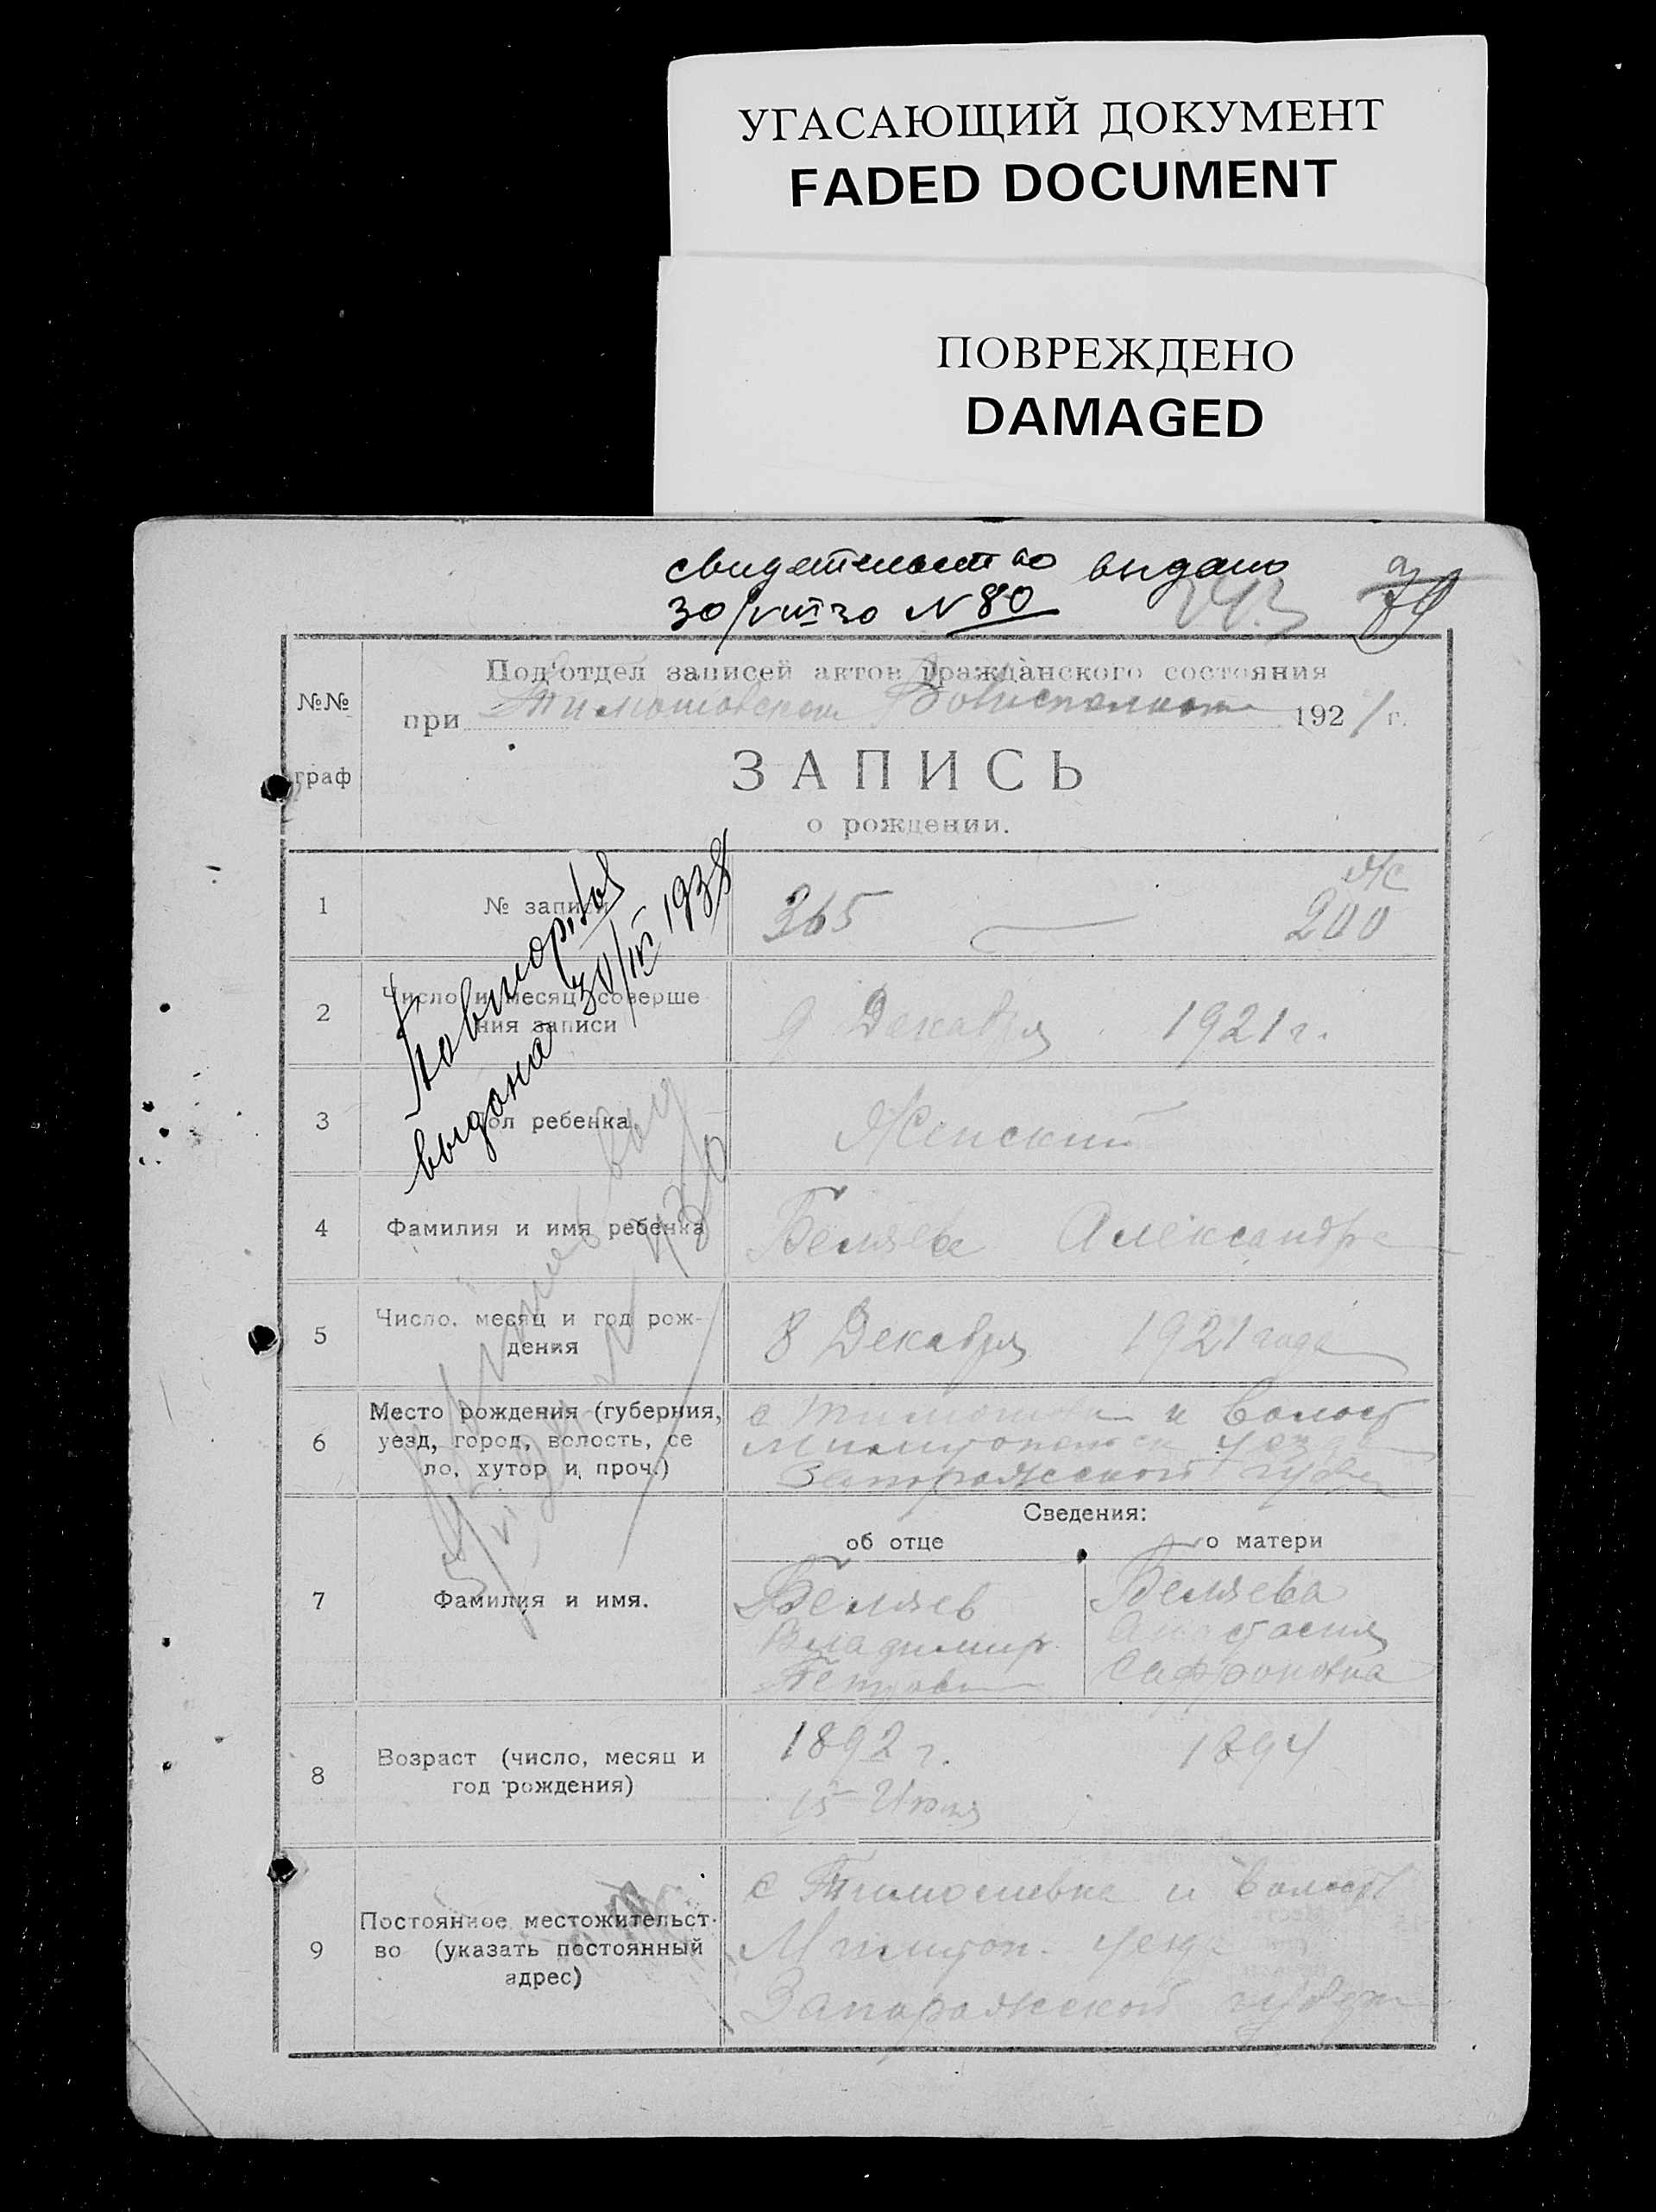 УГАСАЮЩИЙ ДОКУМЕНТ
FADED DOCUMENT
ПОВРЕЖДЕНО
DAMAGED
свидетельство выдано
30/VIII 30 N 80
№№
граф
Под'отдел записей актов гражданского состояния
при Тимошовском Волисполкоме 1921 г.
ЗАПИСЬ
о рождении.
1
№ записи
365
ж
200
2
Число и месяц соверше
ния записи
9 Декабря 1921 г.
3
Пол ребенка
Женский
4
Фамилия и имя ребенка
Беляева Александра
5
Число, месяц и год рож-
дения
8 Декабря 1921 года
6
Место рождения (губерния,
уезд, город, волость, се
ло, хутор и проч.)
с Тимошовка и волост
Мелитопольск уезда
Запорожской губ
Повторное
выдана 30/IV 1938
Сведения:
об отце
о матери
7
Фамилия и имя.
Беляев
Владимир
Петрович
Беляева
Анастасия
Сафроновна
8
Возраст (число, месяц и
год рождения)
1892 г.
15 Июля
1894
9
Постоянное местожительст-
во (указать постоянный
адрес)
с Тимошевка и волост
Мелитоп. уезд.
Запорожской губерн